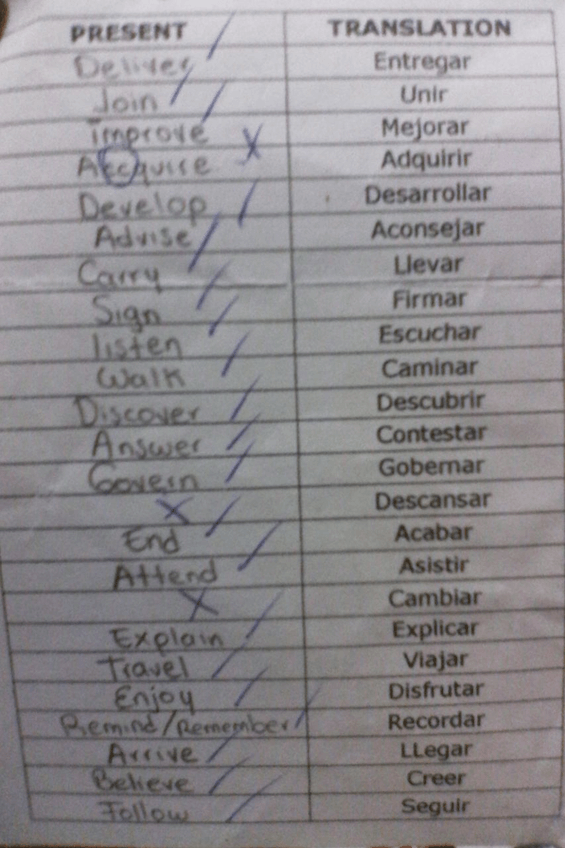 PRESENT TRANSLATION
Deliver Entregar
Join Unir
improve Mejorar
Accquire Adquirir
Develop Desarrollar
Advise Aconsejar
Carry Llevar
Sign Firmar
listen Escuchar
Walk Caminar
Discover Descubrir
Answer Contestar
Govern Gobernar
Descansar
End Acabar
Attend Asistir
Cambiar
Explain Explicar
Travel Viajar
Enjoy Disfrutar
Remind/Remember Recordar
Arrive LLegar
Believe Creer
Follow Seguir